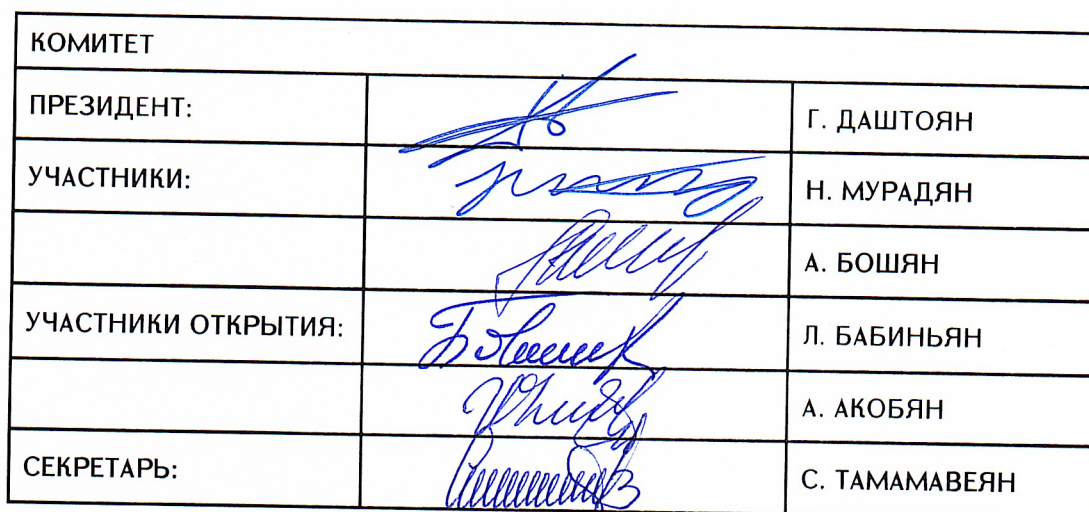 КОМИТЕТ
ПРЕЗИДЕНТ: Г. ДАШТОЯН
УЧАСТНИКИ: Н. МУРАДЯН
А. БОШЯН
УЧАСТНИКИ ОТКРЫТИЯ: Л. БАБИНЬЯН
А. АКОБЯН
СЕКРЕТАРЬ: С. ТАМАМАВЕЯН